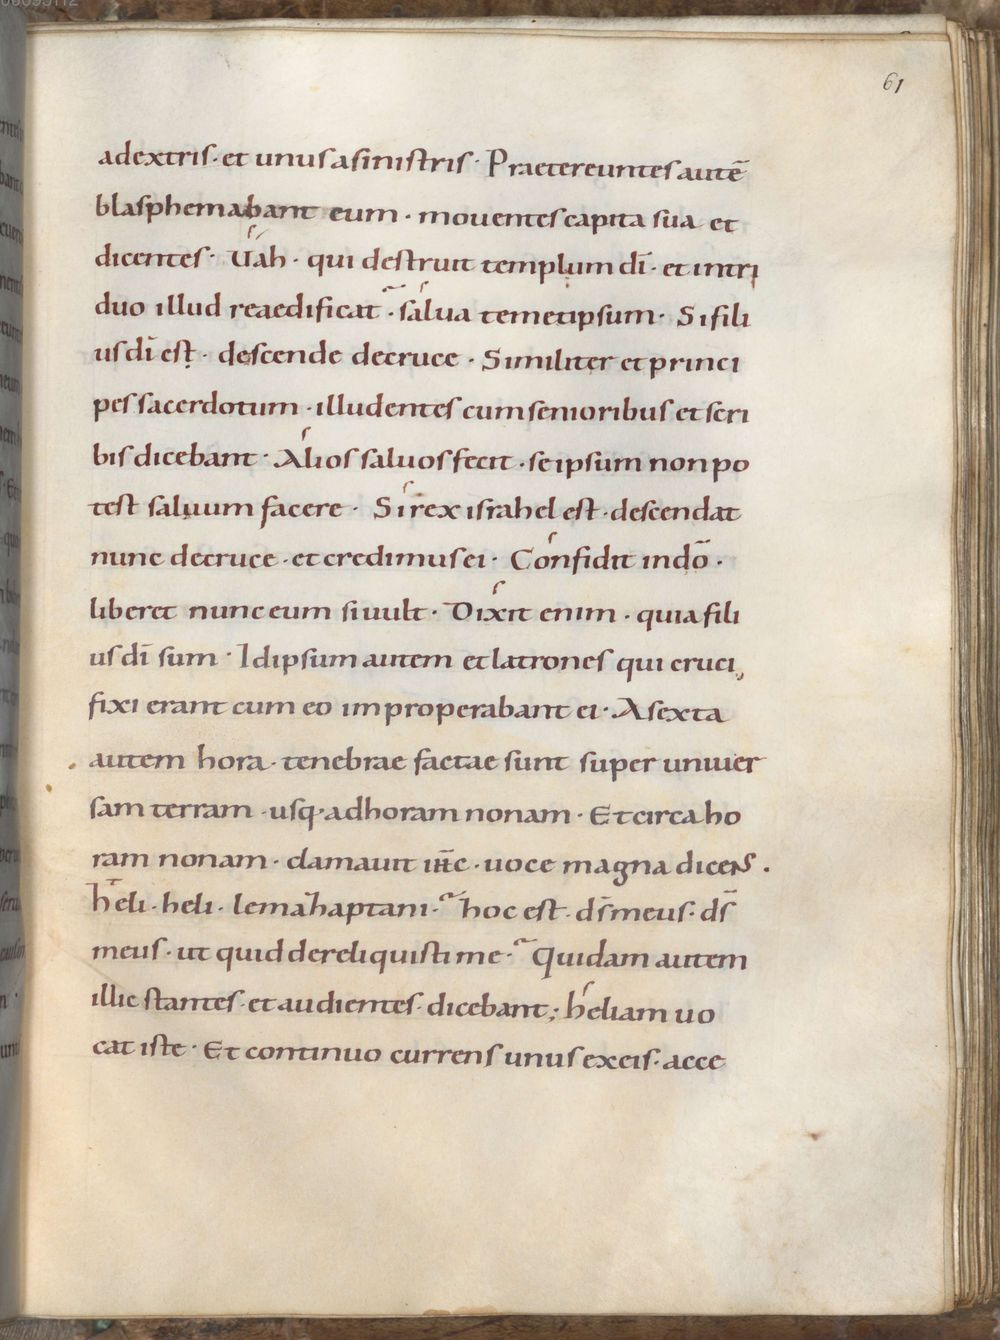 61
adextris· et unus asinistris· Praetereuntes autē
blasphemabant eum· mouentes capita sua et
dicentes· Uah· qui destruit templum dī· et intri
duo illud reaedificat· salua temetipsum· Si fili
us dī est· descende decruce· Similiter et princi
pes sacerdotum· illudentes cum senioribus et scri
bis dicebant· Alios saluos fecit· se ipsum non po
test saluum facere· Si rex israhel est· descendat
nunc decruce· et credimus ei· Confidit in dō·
liberet nunc eum si uult· Dixit enim· quia fili
us dī sum· Idipsum autem et latrones qui cruci
fixi erant cum eo improperabant ei· A sexta
autem hora· tenebrae factae sunt super uniuer
sam terram· usq· ad horam nonam· Et circa ho
ram nonam· clamauit ihc· uoce magna dicens·
heli· heli· lema haptani· hoc est· ds̄ meus· ds̄
meus· ut quid dereliquisti me· Quidam autem
illic stantes· et audientes· dicebant; heliam uo
cat iste· Et continuo currens unus ex eis· acce